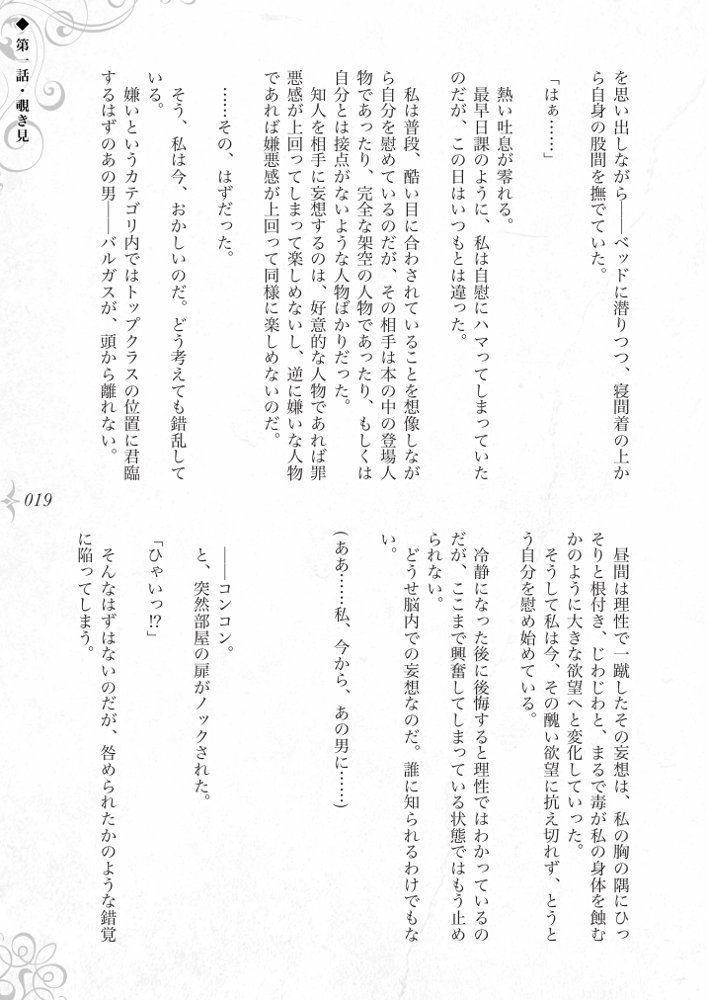 ◆ 第一話・覗き見
を思い出しながら――ベッドに潜りつつ、寝間着の上か
ら自身の股間を撫でていた。
「はぁ……」
熱い吐息が零れる。
最早日課のように、私は自慰にハマってしまっていた
のだが、この日はいつもとは違った。
私は普段、酷い目に合わされていることを想像しなが
ら自分を慰めているのだが、その相手は本の中の登場人
物であったり、完全な架空の人物であったり、もしくは
自分とは接点がないような人物ばかりだった。
知人を相手に妄想するのは、好意的な人物であれば罪
悪感が上回ってしまって楽しめないし、逆に嫌いな人物
であれば嫌悪感が上回って同様に楽しめないのだ。
……その、はずだった。
そう、私は今、おかしいのだ。どう考えても錯乱して
いる。
嫌いというカテゴリ内ではトップクラスの位置に君臨
するはずのあの男――バルガスが、頭から離れない。
昼間は理性で一蹴したその妄想は、私の胸の隅にひっ
そりと根付き、じわじわと、まるで毒が私の身体を蝕む
かのように大きな欲望へと変化していった。
そうして私は今、その醜い欲望に抗え切れず、とうと
う自分を慰め始めている。
冷静になった後に後悔すると理性ではわかっているの
だが、ここまで興奮してしまっている状態ではもう止め
られない。
どうせ脳内での妄想なのだ。誰に知られるわけでもな
い。
(ああ……私、今から、あの男に……)
――コンコン。
と、突然部屋の扉がノックされた。
「ひゃいっ!?」
そんなはずはないのだが、咎められたかのような錯覚
に陥ってしまう。
019